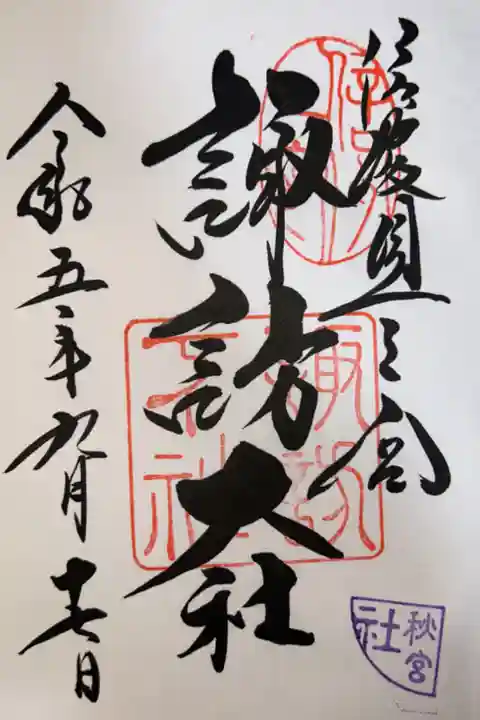 信濃國一之宮
諏訪大社
令和五年九月十七日
諏訪大社
秋宮
社